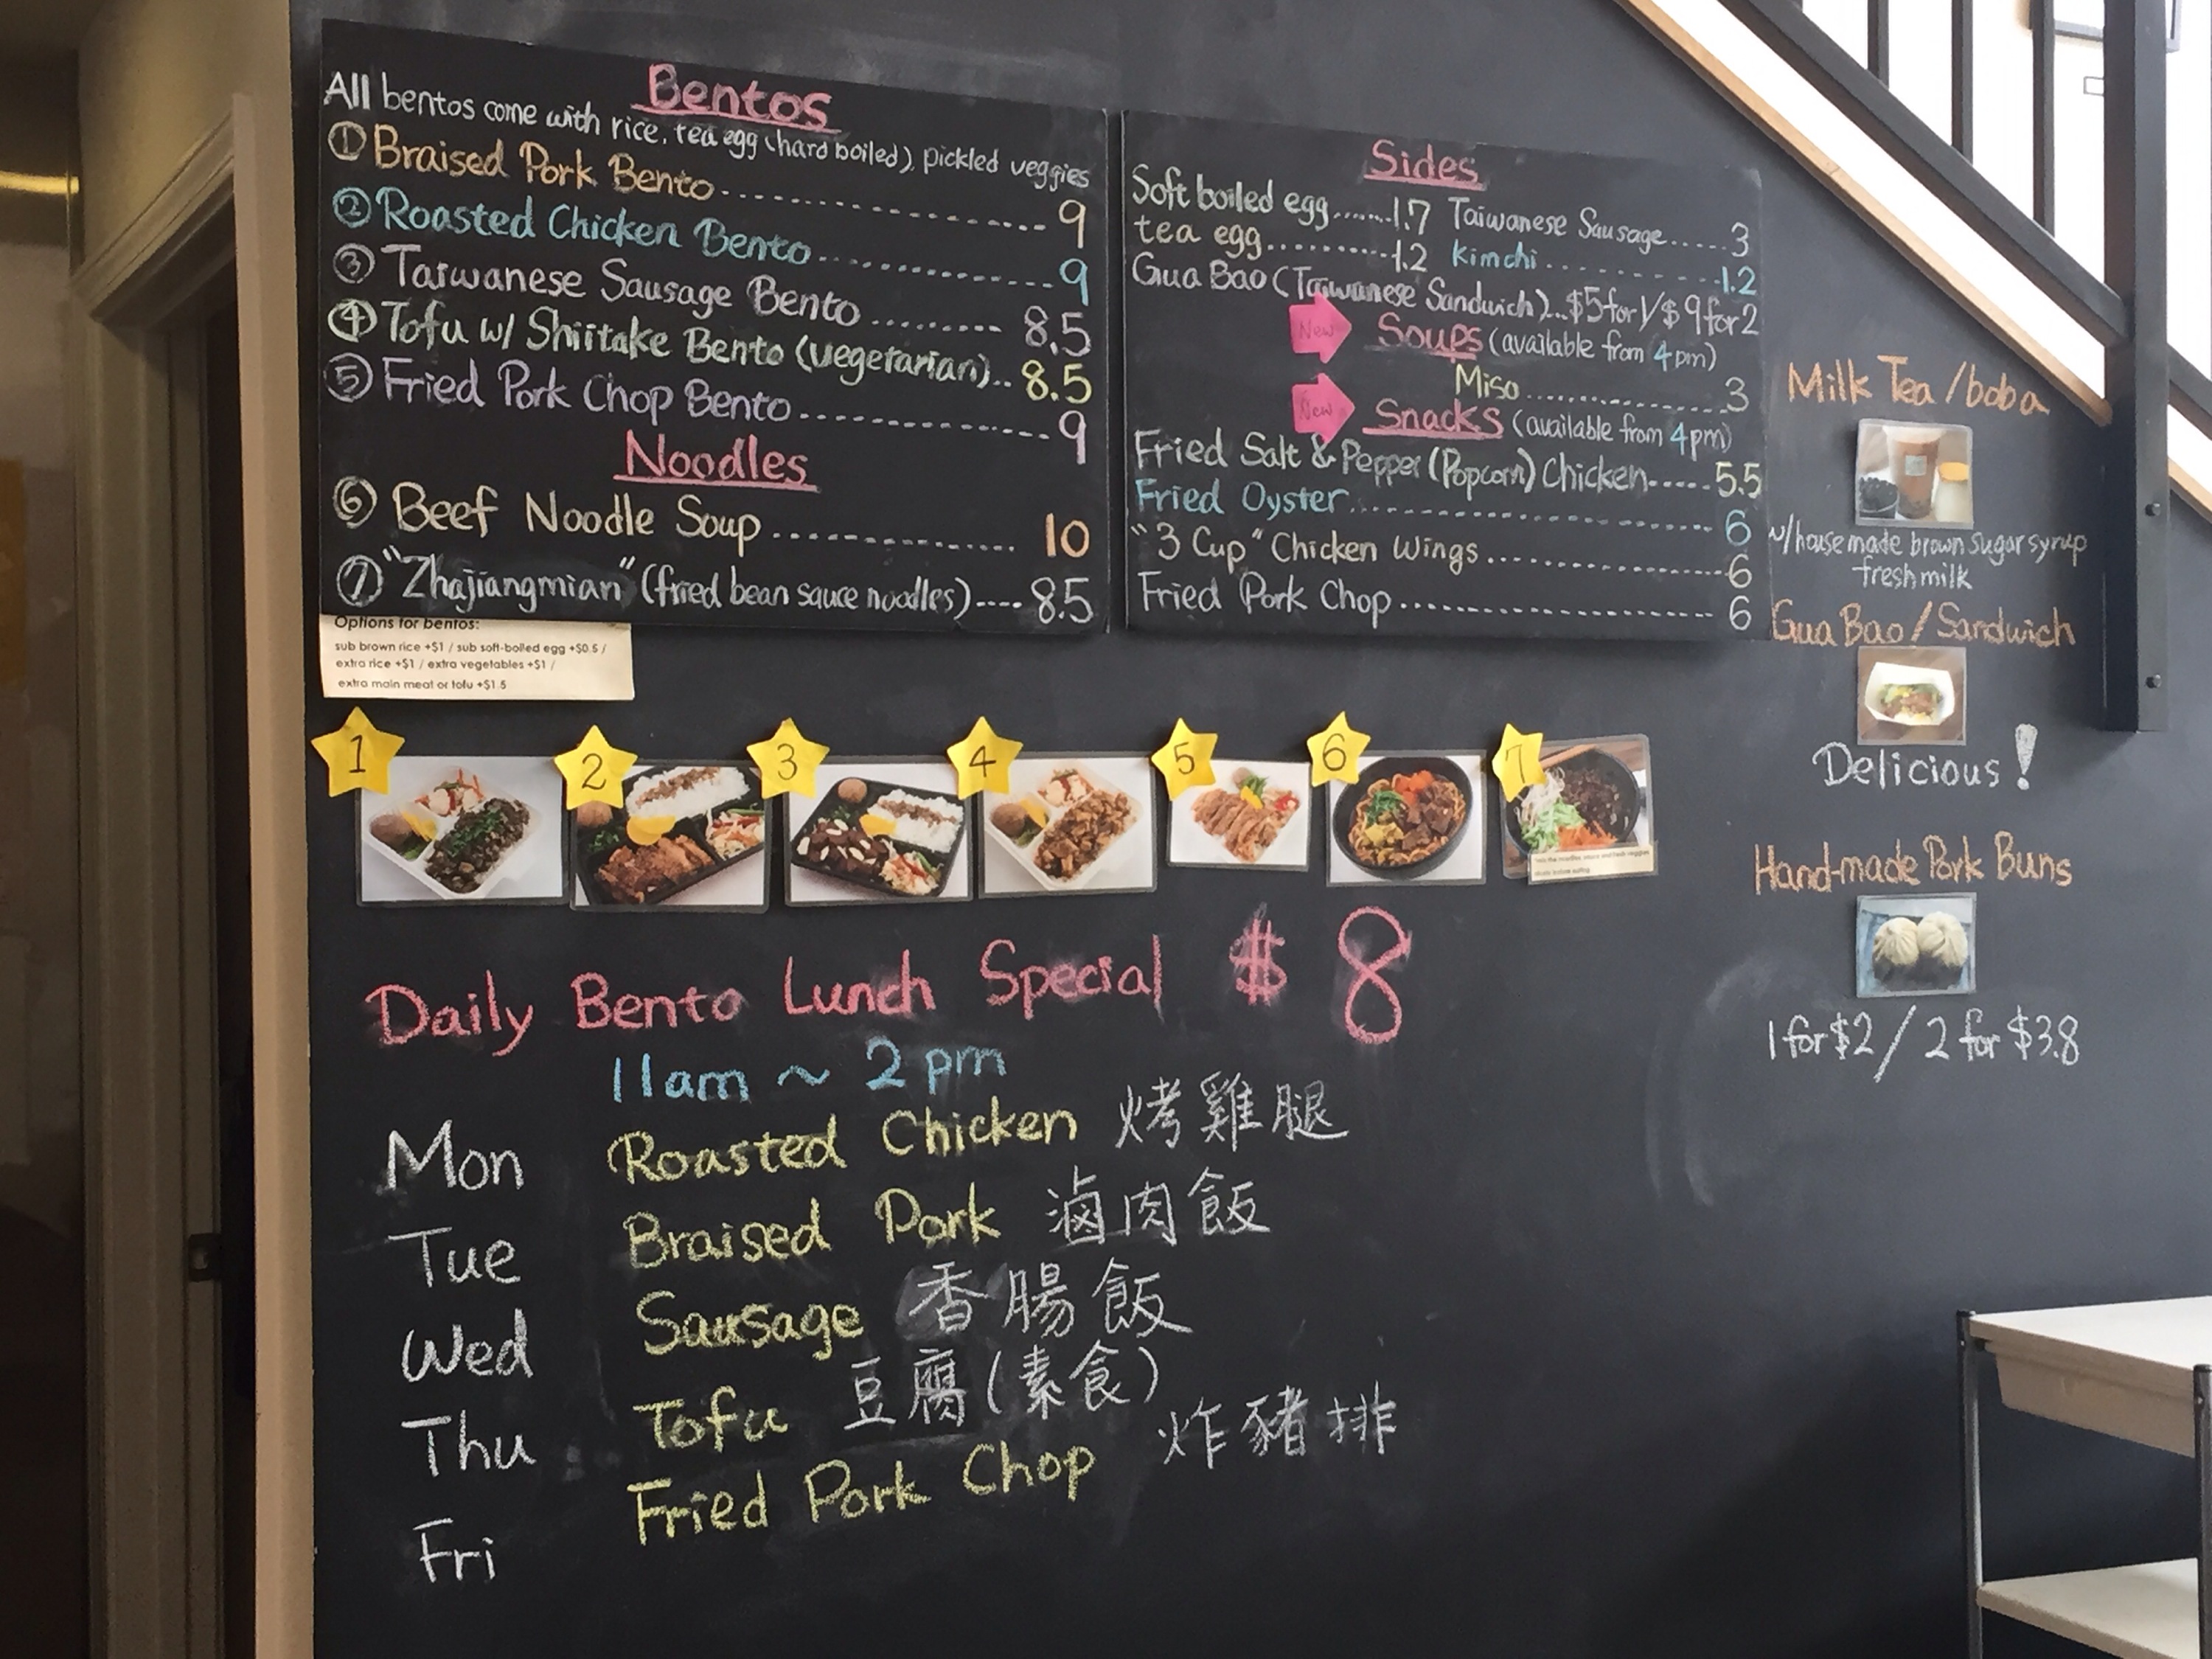 Bentos
All bentos come with rice, tea egg (hard boiled), pickled veggies
① Braised Pork Bento 9
② Roasted Chicken Bento 9
③ Taiwanese Sausage Bento 8.5
④ Tofu w/ Shiitake Bento (vegetarian) 8.5
⑤ Fried Pork Chop Bento 9
Noodles
⑥ Beef Noodle Soup 10
⑦ "Zhajiangmian" (fried bean sauce noodles) 8.5
Options for bentos:
sub brown rice +$1 / sub soft-boiled egg +$0.5 /
extra rice +$1 / extra vegetables +$1 /
extra main meat or tofu +$1.5
Sides
Soft boiled egg 1.7 Taiwanese Sausage 3
tea egg 1.2 kimchi 1.2
Gua Bao (Taiwanese Sandwich) $5 for 1/$9 for 2
New Soups (available from 4pm)
Miso 3
New Snacks (available from 4pm)
Fried Salt & Pepper (Popcorn) Chicken 5.5
Fried Oyster 6
"3 Cup" Chicken Wings 6
Fried Pork Chop 6
Milk Tea / boba
w/ house made brown sugar syrup
fresh milk
Gua Bao / Sandwich
Delicious!
Hand-made Pork Buns
1 for $2 / 2 for $3.8
1 2 3 4 5 6 7
Daily Bento Lunch Special $8
11am ~ 2pm
Mon Roasted Chicken 烤雞腿
Tue Braised Pork 滷肉飯
Wed Sausage 香腸飯
Thu Tofu 豆腐(素食)
Fri Fried Pork Chop 炸豬排